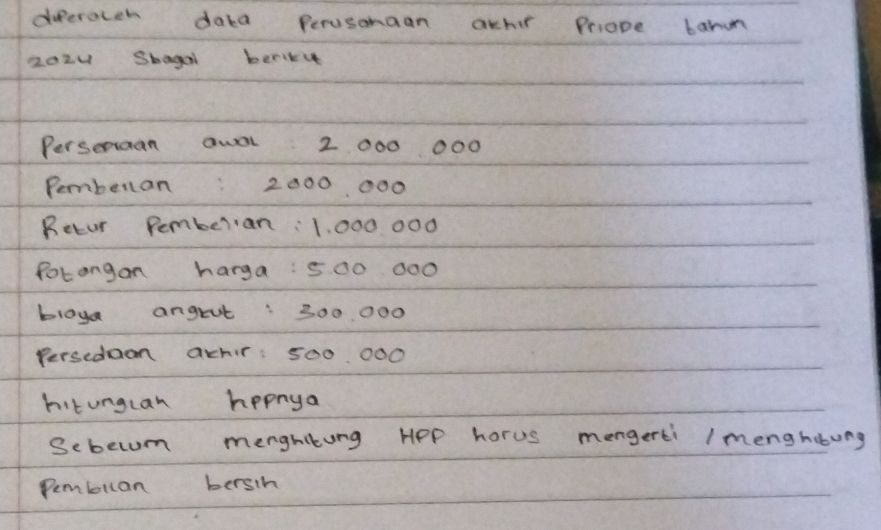 diperoleh data Perusahaan akhir Priode tahun
2024 Sbagai berikut
Persediaan awal : 2.000.000
Pembelian : 2000.000
Retur Pembelian : 1.000.000
Potongan harga : 500.000
biaya angkut : 300.000
Persedaan akhir : 500.000
hitunglah hppnya
Sebelum menghitung HPP harus mengerti / menghitung
Pembilan bersih